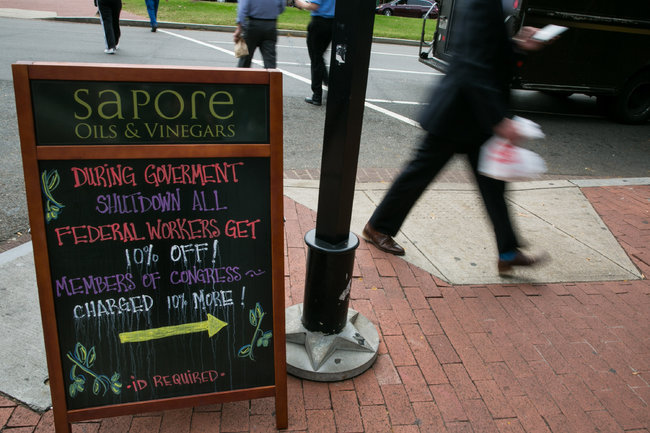 SAPORE
OILS & VINEGARS
DURING GOVERMENT
SHUTDOWN ALL
FEDERAL WORKERS GET
10% OFF!
MEMBERS OF CONGRESS ~
CHARGED 10% MORE!
·ID REQUIRED·